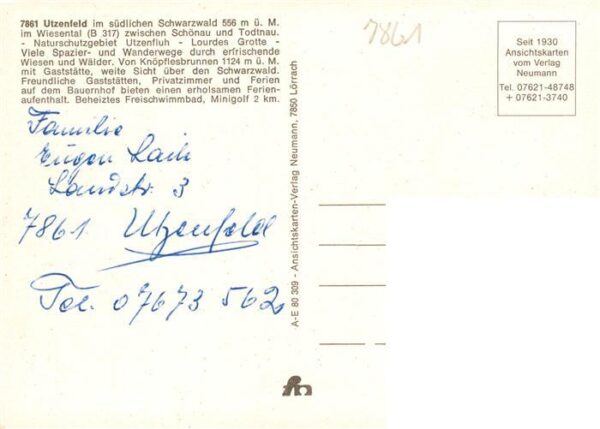 7861 Utzenfeld im südlichen Schwarzwald 556 m ü. M.
im Wiesental (B 317) zwischen Schönau und Todtnau.
- Naturschutzgebiet Utzenfluh - Lourdes Grotte -
Viele Spazier- und Wanderwege durch erfrischende
Wiesen und Wälder. Von Knöpflesbrunnen 1124 m ü. M.
mit Gaststätte, weite Sicht über den Schwarzwald.
Freundliche Gaststätten, Privatzimmer und Ferien
auf dem Bauernhof bieten einen erholsamen Ferien-
aufenthalt. Beheiztes Freischwimmbad, Minigolf 2 km.
Familie
Eugen
Landstr. 3
7861 Utzenfeld
Tel. 07673 562
A-E 80 309 - Ansichtskarten-Verlag Neumann, 7850 Lörrach
7861
Seit 1930
Ansichtskarten
vom Verlag
Neumann
Tel. 07621-48748
+ 07621-3740